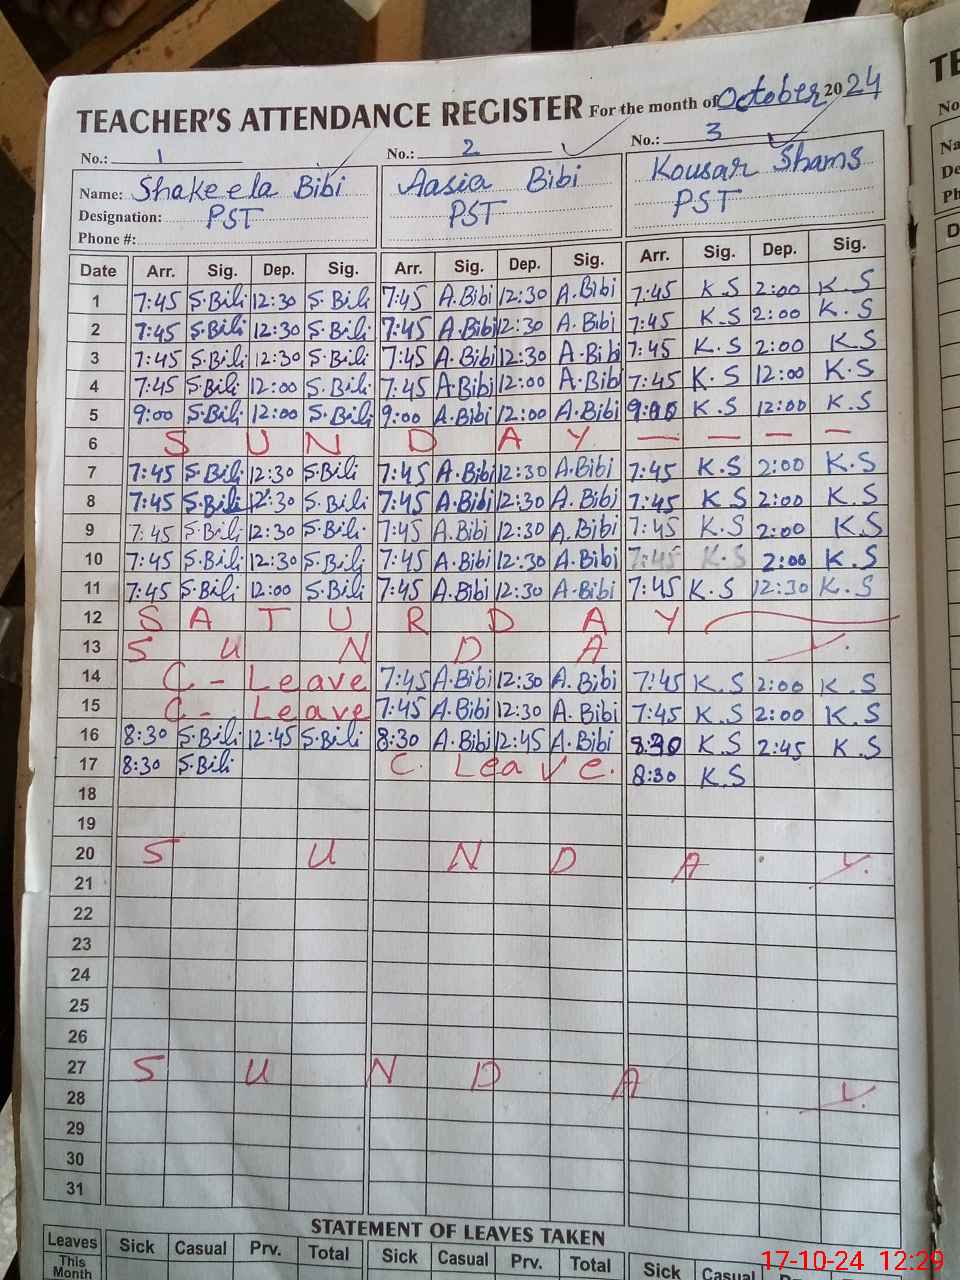 TEACHER'S ATTENDANCE REGISTER For the month of October 2024
No.: 1 No.: 2 No.: 3
Name: Shakeela Bibi Aasia Bibi Kousar Shams
Designation: PST PST PST
Phone #:
Date Arr. Sig. Dep. Sig. Arr. Sig. Dep. Sig. Arr. Sig. Dep. Sig.
1 7:45 S.Bibi 12:30 S.Bibi 7:45 A.Bibi 12:30 A.Bibi 7:45 K.S 2:00 K.S
2 7:45 S.Bibi 12:30 S.Bibi 7:45 A.Bibi 12:30 A.Bibi 7:45 K.S 2:00 K.S
3 7:45 S.Bibi 12:30 S.Bibi 7:45 A.Bibi 12:30 A.Bibi 7:45 K.S 2:00 K.S
4 7:45 S.Bibi 12:00 S.Bibi 7:45 A.Bibi 12:00 A.Bibi 7:45 K.S 12:00 K.S
5 9:00 S.Bibi 12:00 S.Bibi 9:00 A.Bibi 12:00 A.Bibi 9:00 K.S 12:00 K.S
6 S U N D A Y — — — —
7 7:45 S.Bibi 12:30 S.Bibi 7:45 A.Bibi 12:30 A.Bibi 7:45 K.S 2:00 K.S
8 7:45 S.Bibi 12:30 S.Bibi 7:45 A.Bibi 12:30 A.Bibi 7:45 K.S 2:00 K.S
9 7:45 S.Bibi 12:30 S.Bibi 7:45 A.Bibi 12:30 A.Bibi 7:45 K.S 2:00 K.S
10 7:45 S.Bibi 12:30 S.Bibi 7:45 A.Bibi 12:30 A.Bibi 7:45 K.S 2:00 K.S
11 7:45 S.Bibi 12:00 S.Bibi 7:45 A.Bibi 12:30 A.Bibi 7:45 K.S 12:30 K.S
12 S A T U R D A Y
13 S U N D A Y.
14 C - Leave 7:45 A.Bibi 12:30 A.Bibi 7:45 K.S 2:00 K.S
15 C - Leave 7:45 A.Bibi 12:30 A.Bibi 7:45 K.S 2:00 K.S
16 8:30 S.Bibi 12:45 S.Bibi 8:30 A.Bibi 12:45 A.Bibi 8:30 K.S 2:45 K.S
17 8:30 S.Bibi C. Leave. 8:30 K.S
18
19
20 S U N D A Y.
21
22
23
24
25
26
27 S U N D A Y.
28
29
30
31
STATEMENT OF LEAVES TAKEN
Leaves Sick Casual Prv. Total Sick Casual Prv. Total Sick Casual
This Month
17-10-24 12:29